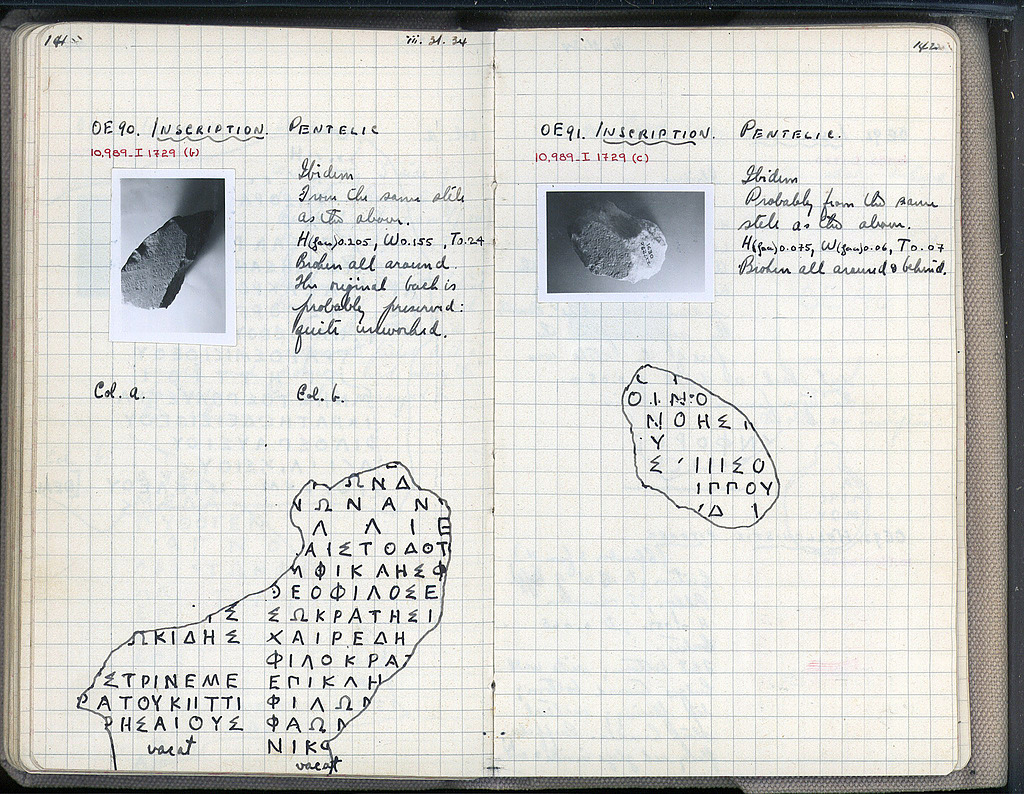 141
iii. 31. 34
OE90. INSCRIPTION. PENTELIC
10,989_I 1729 (b)
Ibidem
From the same stele
as the above.
H(fau)0.205, W0.155, T0.24
Broken all around.
The original back is
probably preserved:
quite unworked.
Col. a.
Col. b.
ΩΝΔ
ΝΩΝΑΝ
Λ ΛΙΕ
ΑΙΣΤΟΔΟΤ
ΦΙΚΛΗΣΦ
ΘΕΟΦΙΛΟΣΕ
Σ ΣΩΚΡΑΤΗΣΙ
ΩΚΙΔΗΣ ΧΑΙΡΕΔΗ
ΦΙΛΟΚΡΑΤ
ΣΤΡΙΝΕΜΕ ΕΠΙΚΛΗ
ΡΑΤΟΥΚΙΙΤΤΙ ΦΙΛΩΝ
ΡΗΣΑΙΟΥΣ ΦΑΩΝ
vacat ΝΙΚΟ
vacat
142
OE91. INSCRIPTION. PENTELIC.
10,989_I 1729 (c)
Ibidem
Probably from the same
stele as the above.
H(fau)0.075, W(fau)0.06, T0.07
Broken all around & behind.
ΟΙΝΟ
ΝΟΗΣΙ
Υ
Σ ΙΙΙΣΟ
ΙΓΓΟΥ
Δ Ι